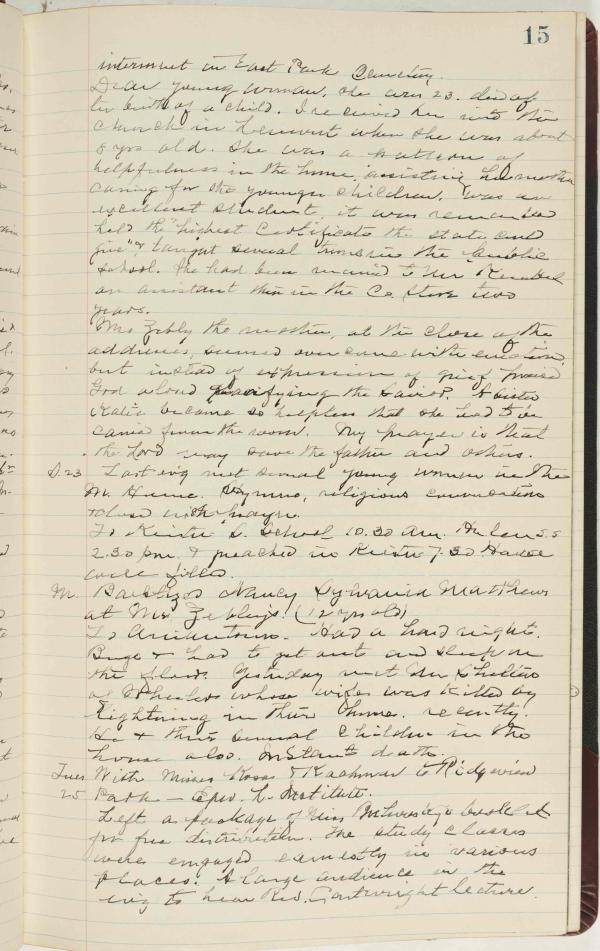 15
interment in East Park Cemetery.
Dear young woman, she was 23. died of
the birth of a child. I received her into the
church in when she was about
8 yrs old. She was a pattern of
helpfulness in the home, assisting her mother
caring for the younger children, was an
excellent student, it was remarked
held the "highest Certificate the state could
give" & taught several terms in the public
school. She had been married to Mr
an assistant in the Co. Store two
years.
Mrs Zebly the mother, at the close of the
address, seemed overcome with emotion,
but instead of expression of grief praised
God aloud glorifying the Savior. A sister
Katie became so helpless that she had to be
carried from the room. My prayer is that
the Lord may save the father and others.
S. 23 Last evg met several young women in the
M. Home. Hymns, religious conversation
closed with prayer.
To S. School 10.30 am.
2.30 pm. & preached in 7.30 House
well filled.
M. Baptized Nancy Sylvania Matthews
at Mrs Zebley's. (12 yrs old)
To Had a hard night.
Bugs & had to get out and sleep on
the floor. Yesterday met Mr
of whose wife was killed by
lightning in their home, recently.
He & their several children in the
house also. Instant death.
Tues With Misses & to Ridgeview
25 Park — Epw. L. Institute.
Left a package of Miss booklets
for free distribution. The study classes
were engaged earnestly in various
places. A large audience in the
evg to hear Rev. Cartwright lecture.